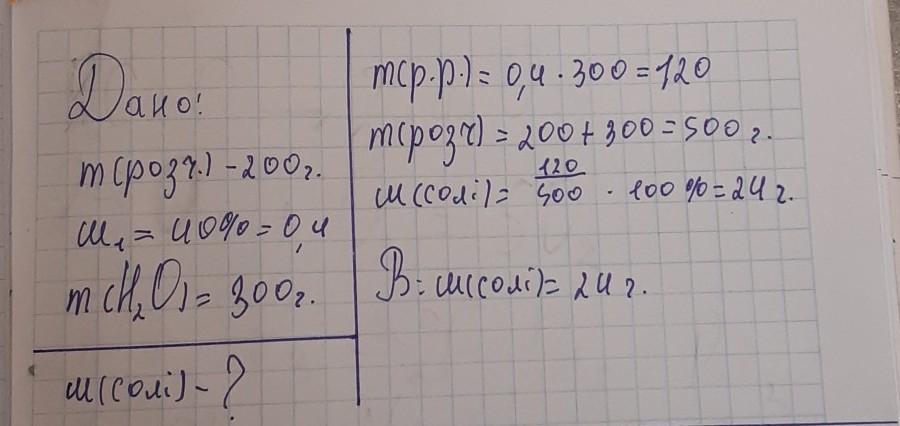 Дано:
m(розч.) - 200г.
ω₁ = 40% = 0,4
m(H₂O) = 300г.
ω(солі) - ?
m(р.р.) = 0,4 · 300 = 120
m(розч) = 200 + 300 = 500 г.
ω(солі) = 120/500 · 100% = 24 г.
В: ω(солі) = 24 г.